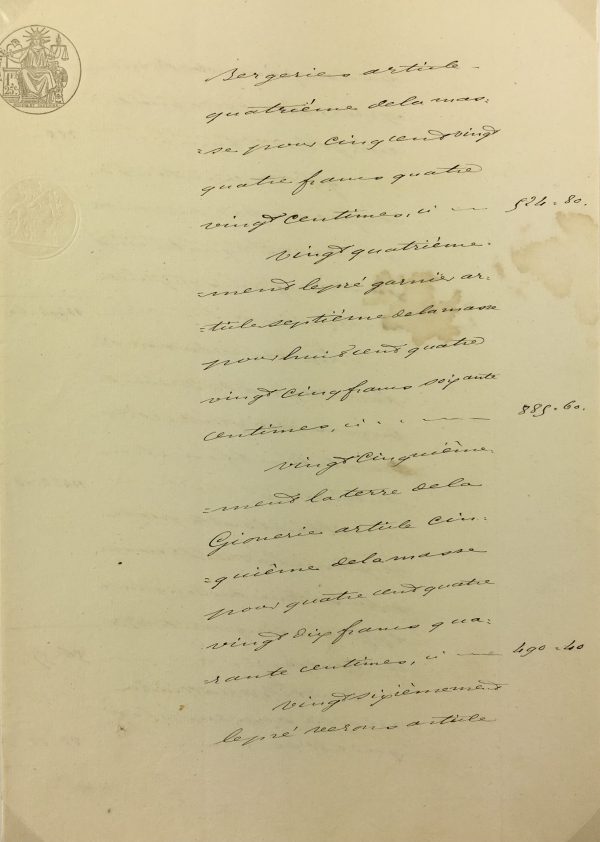 Bergeries article
quatrième de la mas=
=se pour cinq cent vingt
quatre francs quatre
vingt centimes, ci — 524=80.
vingt quatrième=
=ment le pré garnier ar=
=ticle septième de la masse
pour huit cent quatre
vingt cinq francs soixante
centimes, ci — 885=60.
vingt cinquième=
=ment la terre de la
Gionerie article cin=
=quième de la masse
pour quatre cent quatre
vingt dix francs qua=
=rante centimes, ci — 490=40
vingt sixièmement
le pré verons article